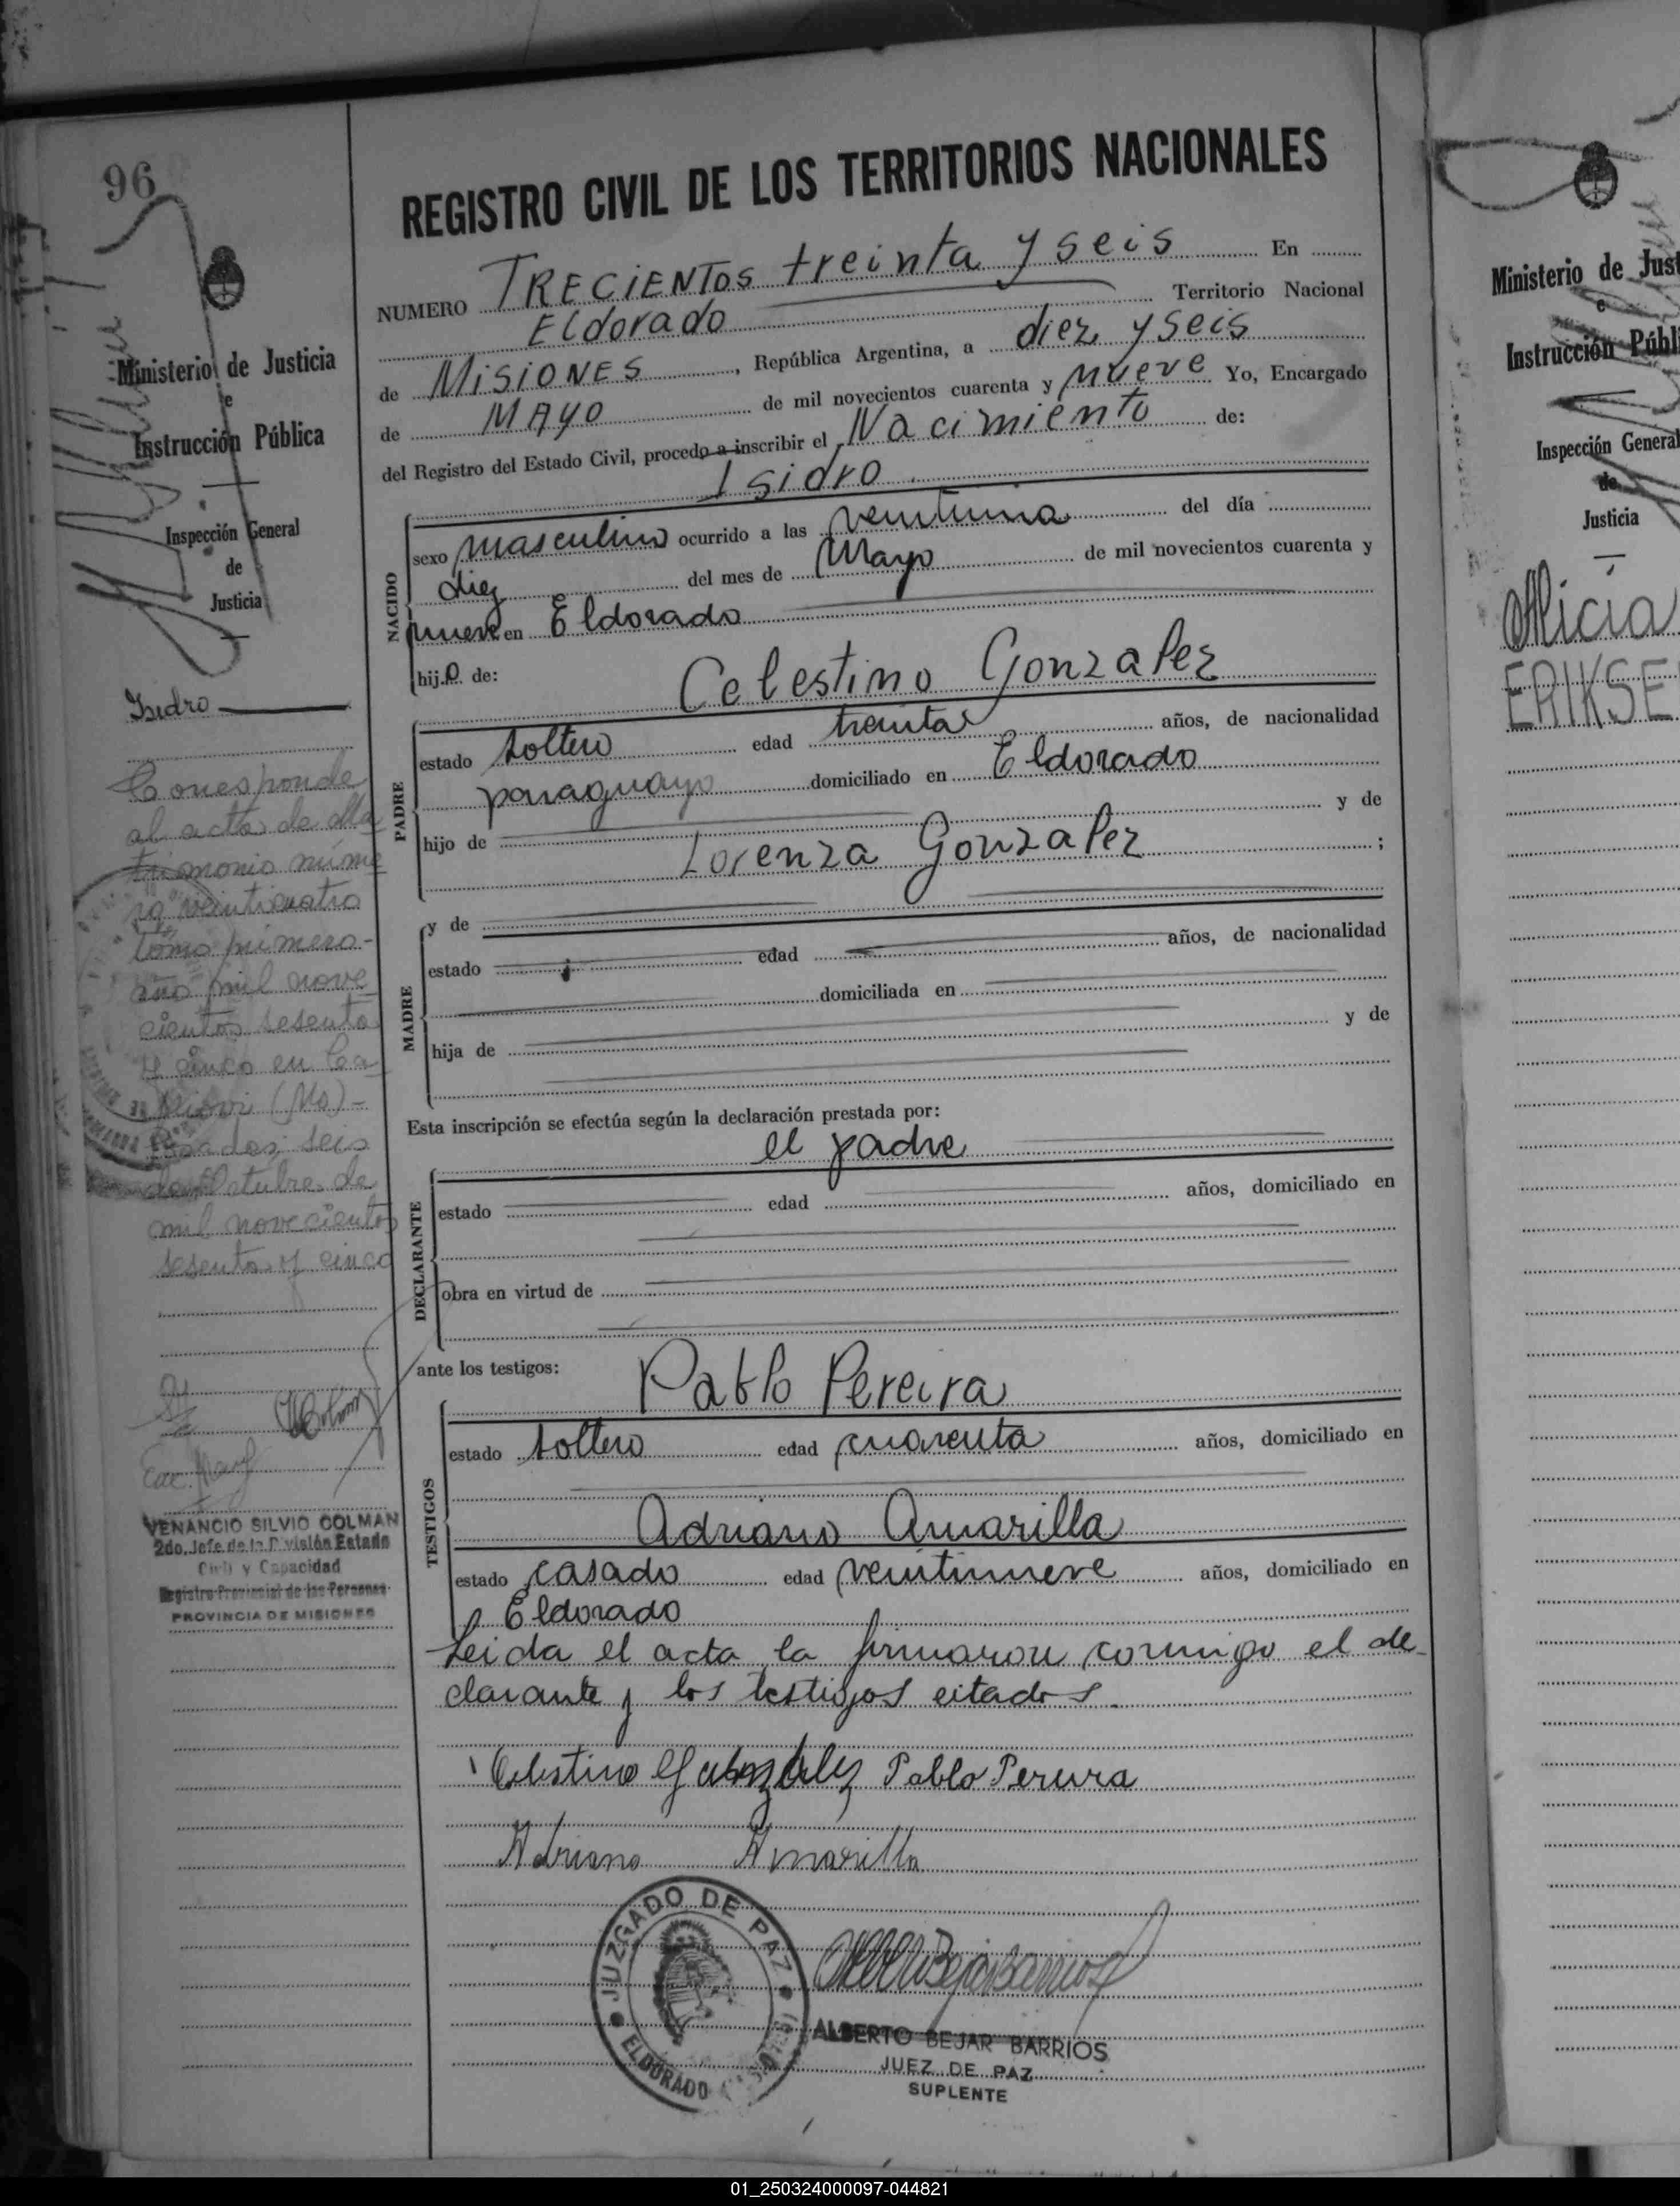 96
Ministerio de Justicia
e
Instrucción Pública
Inspección General
de
Justicia
Isidro
Corresponde
al acta de Ma
trimonio núme
ro veinticuatro
tomo primero-
año mil nove
cientos sesenta
y cinco en Ca
(Ms)-
Posadas, seis
de Octubre de
mil novecientos
sesenta y cinco
VENANCIO SILVIO COLMAN
2do. Jefe de la División Estado
Civil y Capacidad
Registro Provincial de las Personas
PROVINCIA DE MISIONES
REGISTRO CIVIL DE LOS TERRITORIOS NACIONALES
NUMERO TRECIENTOS treinta y seis En
Eldorado Territorio Nacional
de MISIONES, República Argentina, a diez y seis
de MAYO de mil novecientos cuarenta y nueve Yo, Encargado
del Registro del Estado Civil, procedo a inscribir el Nacimiento de:
Isidro
NACIDO
sexo masculino ocurrido a las veintiuna del día
diez del mes de Mayo de mil novecientos cuarenta y
nueve en Eldorado
hijo de: Celestino Gonzalez
PADRE
estado soltero edad treinta años, de nacionalidad
paraguayo domiciliado en Eldorado
hijo de y de
Lorenza Gonzalez ;
MADRE
y de
estado edad años, de nacionalidad
domiciliada en
hija de y de
Esta inscripción se efectúa según la declaración prestada por:
el padre
DECLARANTE
estado edad años, domiciliado en
obra en virtud de
ante los testigos: Pablo Pereira
TESTIGOS
estado soltero edad cuarenta años, domiciliado en
Adriano Amarilla
estado casado edad veintinueve años, domiciliado en
Eldorado
Leida el acta la firmaron conmigo el de-
clarante y los testigos citados.
Celestino Gonzalez Pablo Pereira
Adriano Amarilla
JUZGADO DE PAZ
ELDORADO
ALBERTO BEJAR BARRIOS
JUEZ DE PAZ
SUPLENTE
Ministerio de Just
e
Instrucción Públi
Inspección General
de
Justicia
Alicia
ERIKSE
01_250324000097-044821